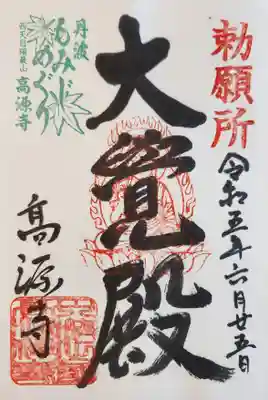 勅願所
令和五年六月廿五日
大覚殿
丹波
もみじめぐり
西天目瑞巌山
高源寺
高源寺